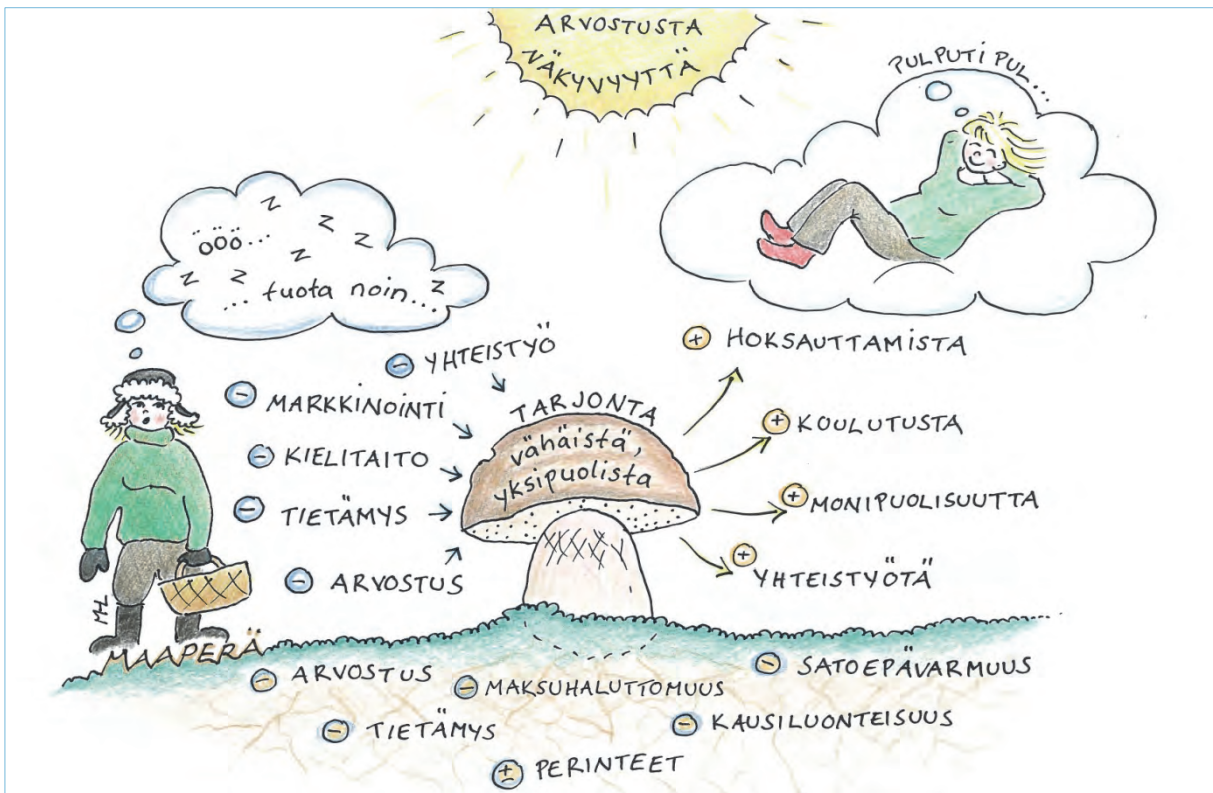 ARVOSTUSTA
NÄKYVYYTTÄ
PULPUTI PUL...
z z z z z z z
...öÖö...
...tuota noin...
⊖ YHTEISTYÖ
⊖ MARKKINOINTI
⊖ KIELITAITO
⊖ TIETÄMYS
⊖ ARVOSTUS
TARJONTA
vähäistä,
yksipuolista
⊕ HOKSAUTTAMISTA
⊕ KOULUTUSTA
⊕ MONIPUOLISUUTTA
⊕ YHTEISTYÖTÄ
MHL
MAAPERÄ
⊖ ARVOSTUS
⊖ MAKSUHALUTTOMUUS
⊖ SATOEPÄVARMUUS
⊖ TIETÄMYS
⊖ KAUSILUONTEISUUS
± PERINTEET